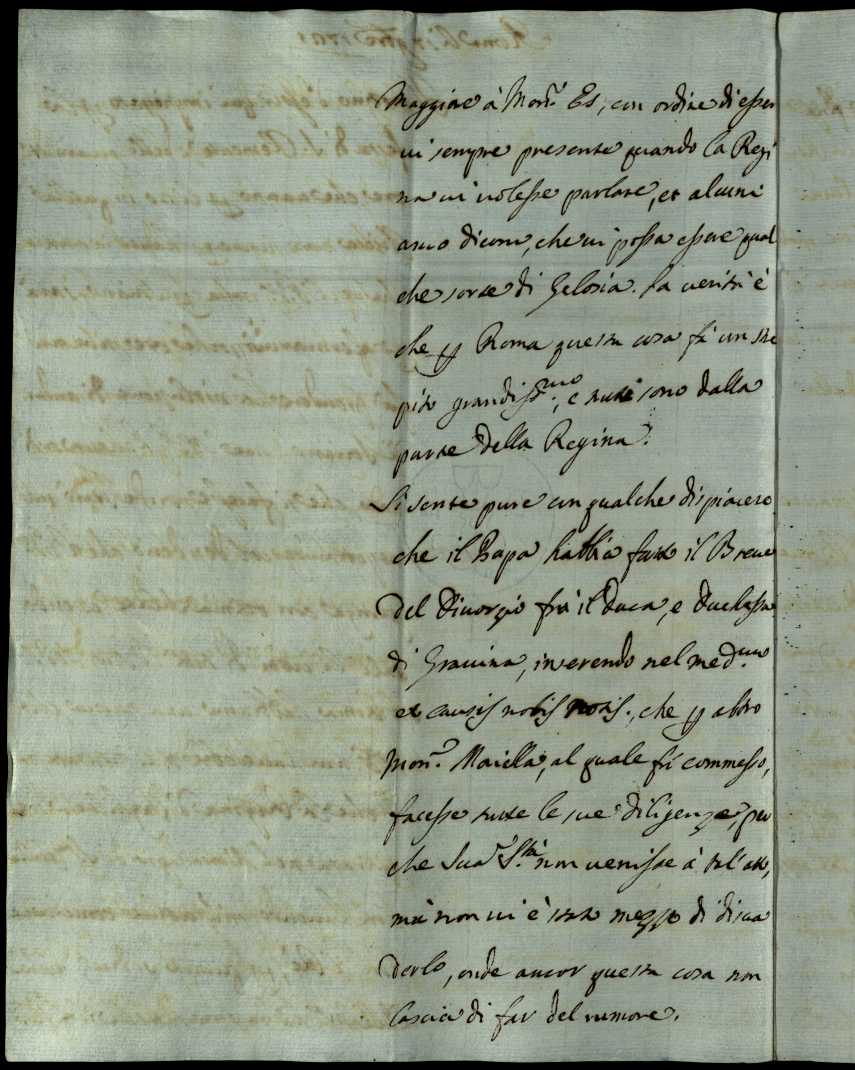 Maggiore à Mons.r Es, con ordine di esser
ui sempre presente quando la Regi
na ui uolesse parlare, et alcuni
anco dicono, che ui possa essere qual
che sorte di Gelosia. La uerità è
che p Roma questa cosa fà un stre
pito grandiss.mo, e tutti sono dalla
parte della Regina.
Si sente pure con qualche dispiacere
che il Papa habbia fatto il Breue
del Diuorzio frà il Duca, e Duchessa
di Grauina, inserendo nel med.mo
ex causis nobis notis, che p altro
Mons.r Maiella, al quale fù commesso,
facesse tutte le sue diligenze, per
che Sua S.tà non uenisse à tal'atto,
mà non ui è stato mezzo di disua
derlo, onde ancor questa cosa non
lascia di far del rumore.